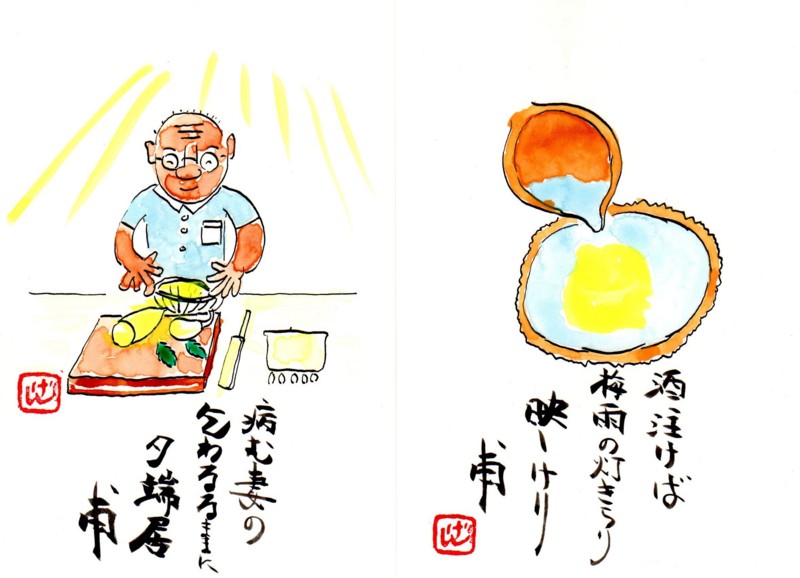 酒注けば
梅雨の灯きらり
映しけり
甫
病む妻の
乞わるるままに
夕端居
甫